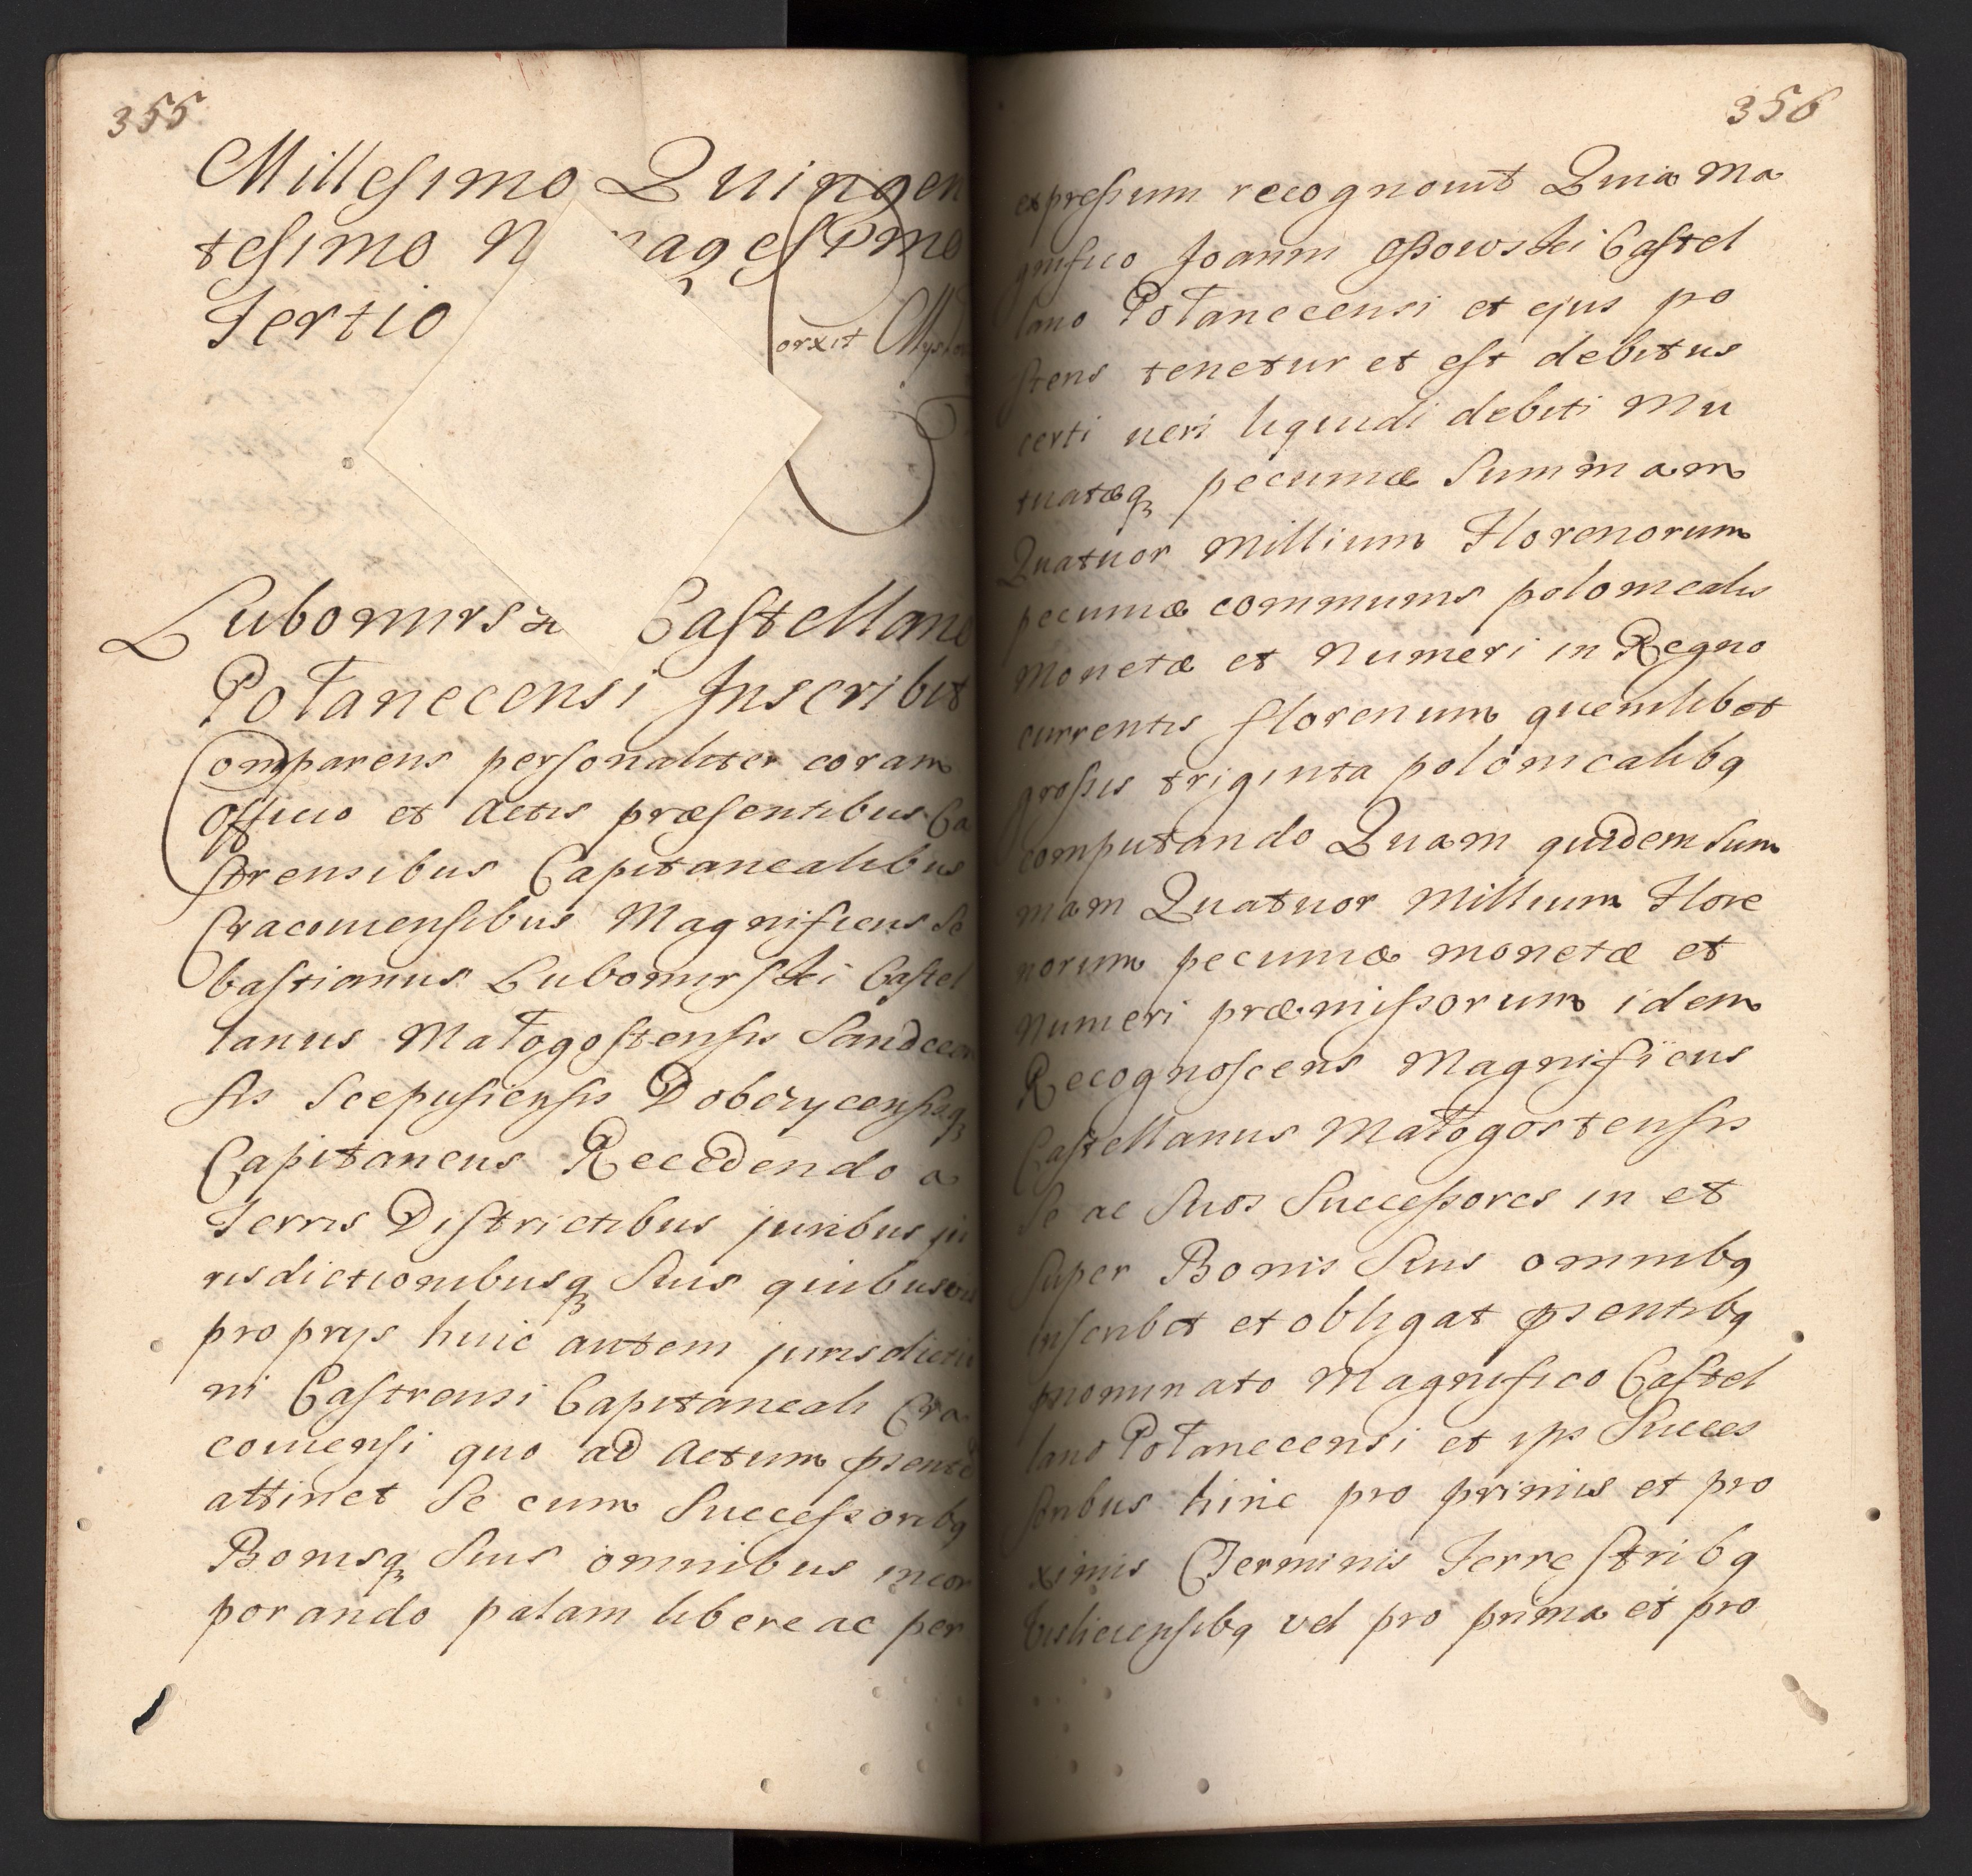 355
Millesimo Quingen
tesimo N nagesimo
Tertio
orxit
Lubomirski Castellano
Połanecensi Inscribit
Comparens personaliter coram
Officio et Actis præsentibus Ca
strensibus Capitanealibus
Cracoviensibus Magnificus Se
bastianus Lubomirski Castel
lanus Małogostensis Sandecen
sis Scepusiensis Dobczycensisq
Capitaneus Recedendo a
Terris Districtibus juribus ju
risdictionibusq Suis quibusvis
proprijs huic autem jurisdictio
ni Castrensi Capitaneali Cra
coviensi quo ad Actum psente
attinet Se cum Successoribq
Bonisq Suis omnibus incor
porando palam libere ac per
356
expressum recognovit Quia Ma
gnifico Joanni Ossowski Castel
lano Połanecensi et ejus po
steris tenetur et est debitus
certi veri liquidi debiti Mu
tuatæq pecuniæ Summam
Quatuor Millium Florenorum
pecuniæ communis polonicalis
Monetæ et Numeri in Regno
currentis florenum quemlibet
grossis triginta polonicalibq
computando Quam quidem Sum
mam Quatuor Millium Flore
norum pecuniæ monetæ et
Numeri præmissorum idem
Recognoscens Magnificus
Castellanus Małogostensis
Se ac Suos Successores in et
Super Bonis Suis omnibq
inscribit et obligat psentibq
pnominato Magnifico Castel
lano Połanecensi et ips Succes
soribus hinc pro primis et pro
ximis Terminis Terrestribq
Visliciensibq vel pro prima et pro